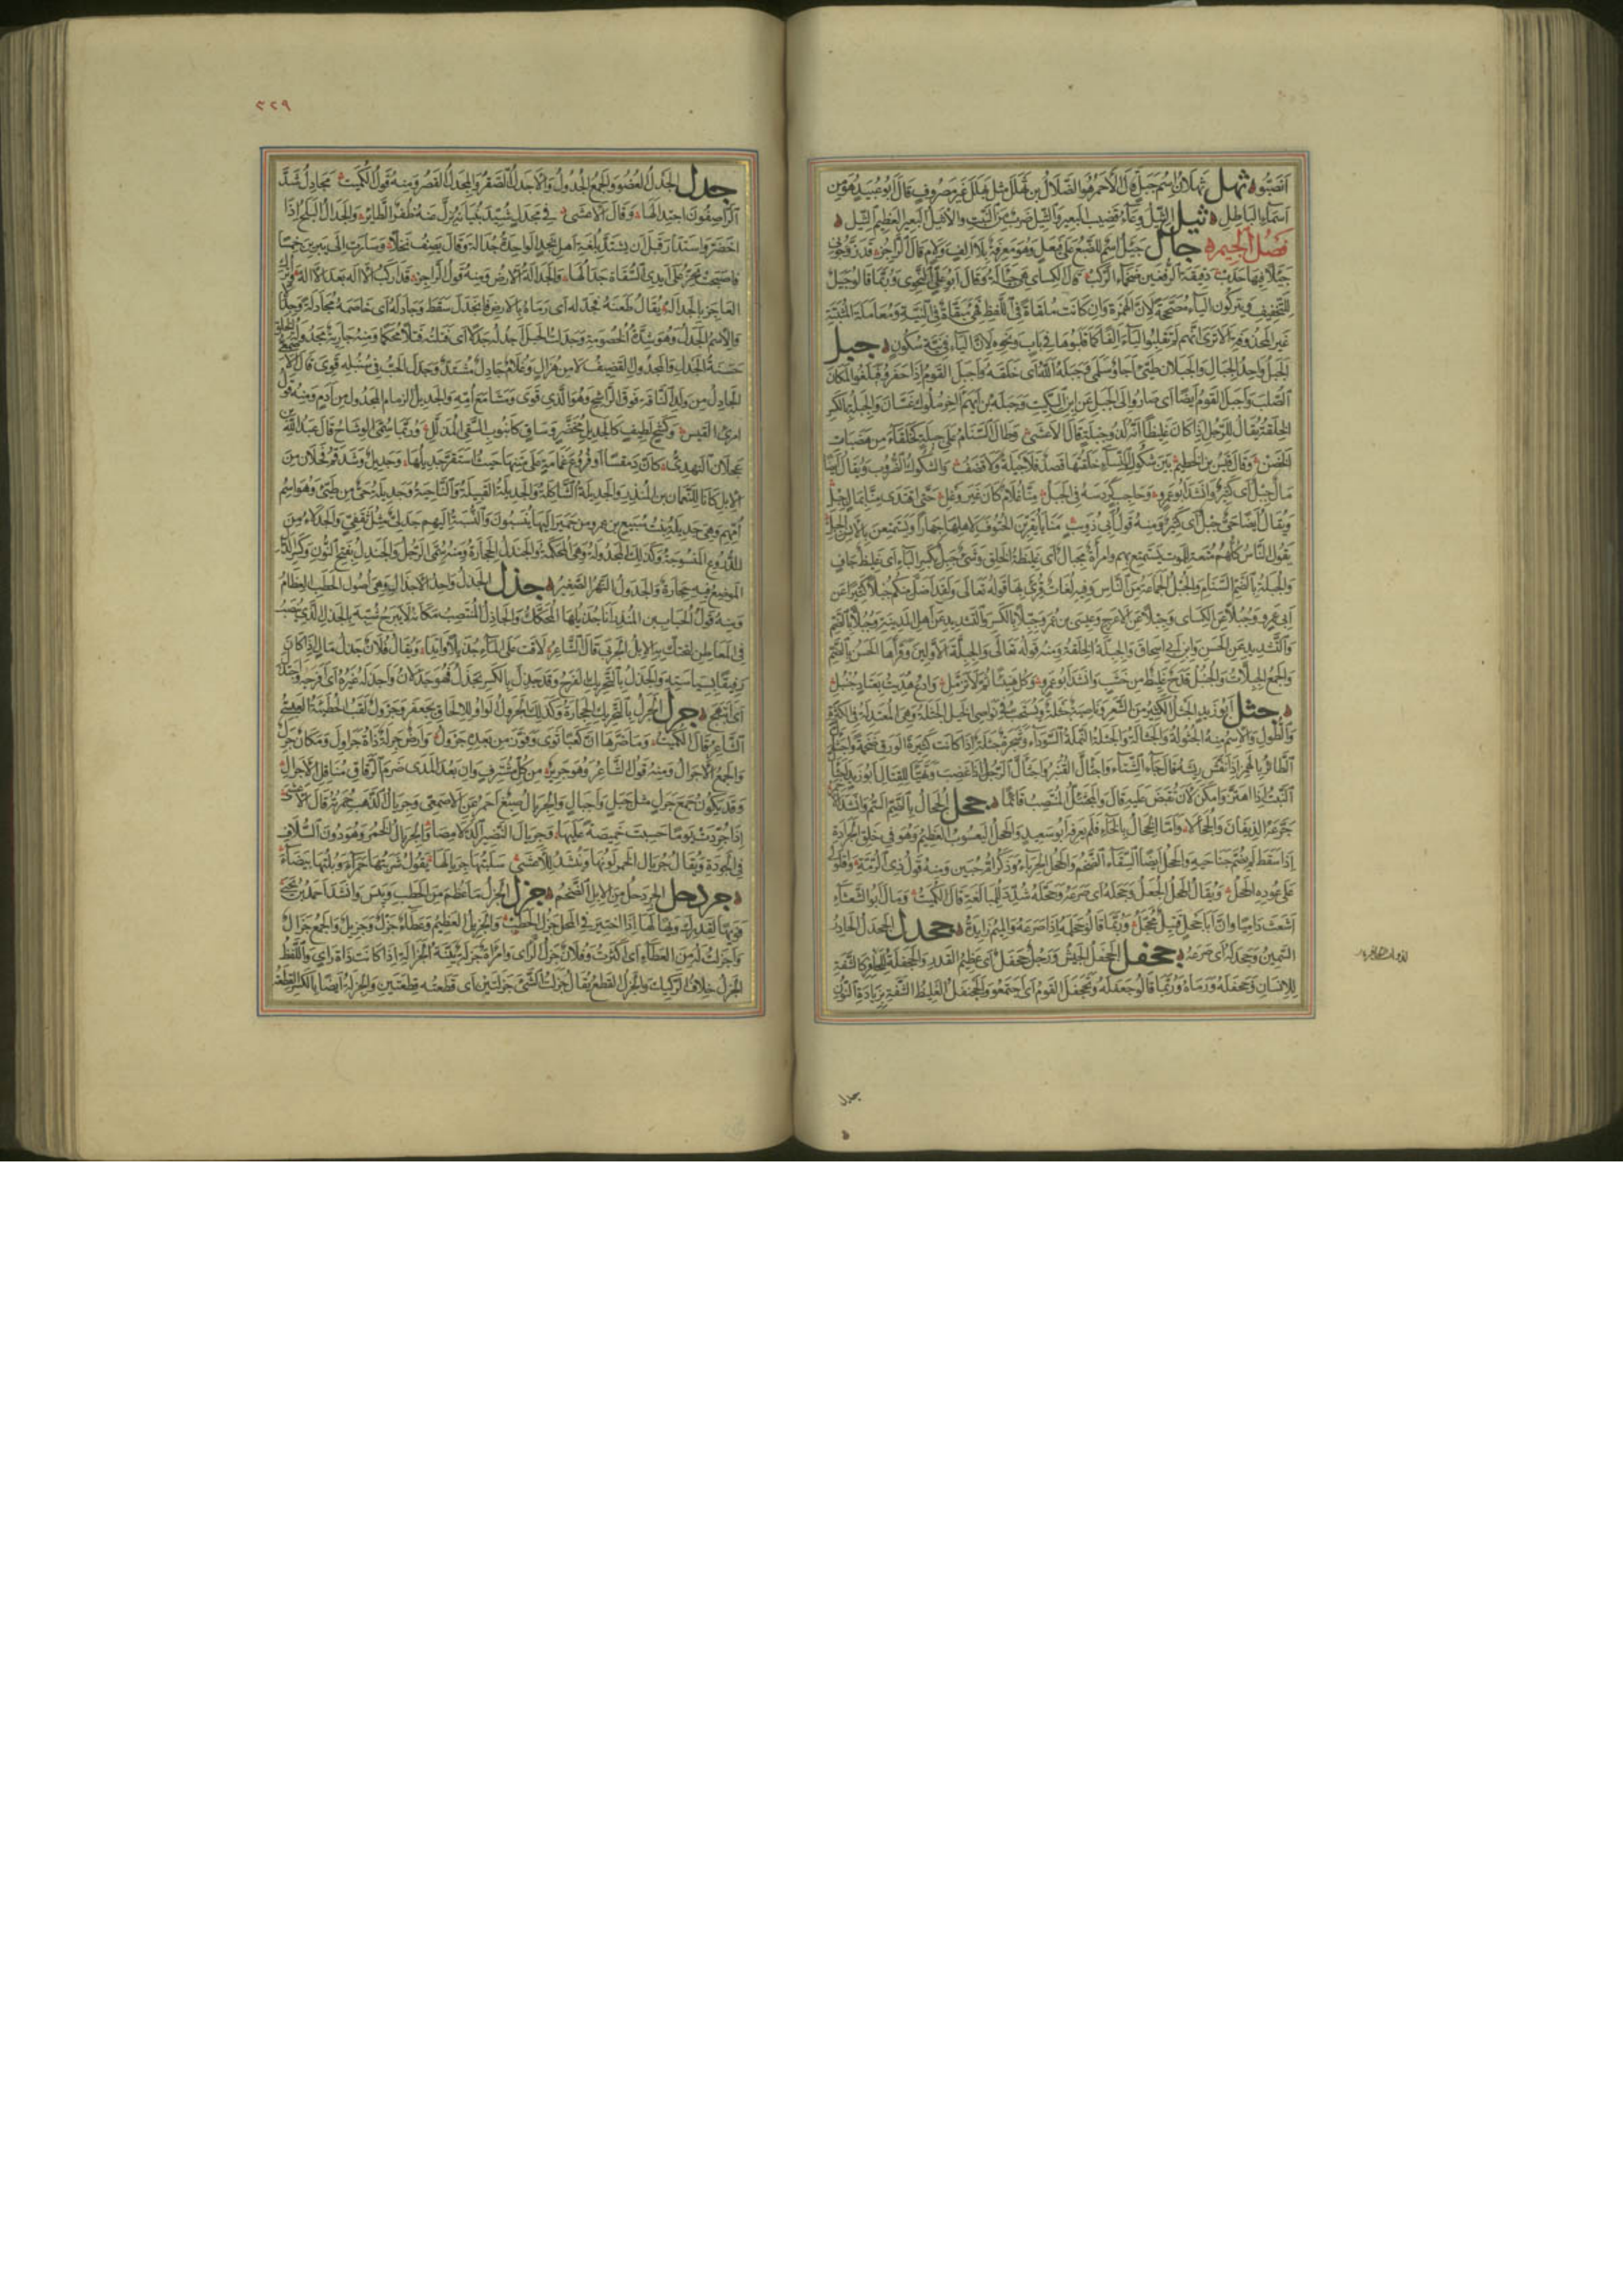 انصبوا ثهل ثهلان اسم جبل قال الاحمر هو الضلال بن ثهلل مثل بهلل غير مصروف قال ابو عبيد هو من
اسماء الباطل ثيل الثيل وعاء قضيب البعير والثيل ضرب من النبت والاثيل البعير العظيم الثيل
فصل الجيم جأل جيئل اسم للضبع على فيعل وهو معرفة بلا الف ولام قال الراجز قد زوجوني
جيئلا فيها حدب دقيقة الرفغين ضخماء الركب قال الكسائي هي جيألة وقال ابو علي النحوي وربما قالوا جيل
للتخفيف ويتركون الياء مصححة لان الهمزة وان كانت ملقاة في اللفظ فهي مبقاة في النية ومعاملة معاملة المثبتة
غير المحذوفة الا ترى انهم لم يقلبوا الياء الفا كما قلبوها في باب ونحوه لان الياء في نية سكون جبل
الجبل واحد الجبال والجبلان طيئ اجأ وسلمى وجبله الله اى خلقه واجبل القوم اذا حفروا فبلغوا المكان
الصلب واجبل القوم ايضا اى صاروا الى الجبل عن ابن السكيت وجبلة بن ايهم اخر ملوك غسان والجبلة بالكسر
الخلقة يقال للرجل اذا كان غليظا انه لذو جبلة قال الاعشى وطال السنام على جبلة كخلقاء من هضبات
الحضن وقال قيس بن الخطيم بين شكول النساء خلقتها قصد فلا جبلة ولا قضف والشكول الضروب ويقال ايضا
مال جبل اى كثير وانشد ابو عمرو وحاجب كردسه في الحبل منا غلام كان غير وغل حتى افتدى منا بمال جبل
ويقال ايضا حي جبل اى كثير ومنه قول ابي ذؤيب منايا يقربن الحتوف لاهلها جهارا ويستمتعن بالانس الجبل
يقول الناس كلهم متعة للموت يستمتع بهم وامرأة مجبال اى غليظة الخلق وشيء جبل بكسر الباء اى غليظ جاف
والجبلة بالضم السنام والجبل الجماعة من الناس وفيه لغات قرئ بها قوله تعالى ولقد اضل منكم جبلا كثيرا عن
ابي عمرو وجبلا عن الكسائي وجبلا عن الاعرج وعيسى بن عمر وجبلا بالكسر والتشديد عن اهل المدينة وجبلا بالضم
والتشديد عن الحسن وابن ابي اسحاق والجبلة الخلقة ومنه قوله تعالى والجبلة الاولين وقراها الحسن بالضم
والجمع الجبلات والجنبل قدح غليظ من خشب وانشد ابو عمرو وكل هنيئا ثم لا تزمل وادع هديت بعتاد جنبل
جثل ابو زيد الجثل الكثير من الشعر وناصية جثلة ويستحب في نواصي الخيل الجثلة وهي المعتدلة في الكثرة
والطول والاسم منه الجثولة والجثالة والجثلة النملة السوداء وشجرة جثلة اذا كانت كثيرة الورق ضخمة واجثأل
الطائر بالهمز اذا نفش ريشه قال جاء الشتاء واجثأل القنبر واجثأل الرجل اذا غضب وتهيأ للقتال ابو زيد اجثأل
النبت اذا اهتز وامكن لان يقبض عليه قال والمجثئل المنتصب قائما جحل الجحال بالضم السم وانشد
جرعه الذيفان والجحالا واما الجخال بالخاء فلم يعرفه ابو سعيد والجحل اليعسوب العظيم وهو في خلق الجرادة
اذا سقط لم يضم جناحيه والجحل ايضا السقاء الضخم والجحل الحرباء وهو ذكر ام حبين ومنه قول ذي الرمة واقلولى
على عوده الجحل ويقال الجحل الجعل وجحله اى صرعه وجحله شدد للمبالغة قال الكميت ومال ابو الشعثاء
اشعث داميا وان ابا جحل قتيل مجحل وربما قالوا جحلمه اذا صرعه والميم زايدة جحدل الجحدل الحادر
السمين وجحدله اى صرعه جحفل الجحفل الجيش ورجل جحفل اى عظيم القدر والجحفلة للحافر كالشفة
للانسان وجحفله ورماه وربما قالوا جعفله وتجحفل القوم اى اجتمعوا والجحنفل الغليظ الشفة بزيادة النون
جدل
٣٢٩
جدل الجدل العضو والجمع الجدول والاجدل الصقر والمجدل القصر ومنه قول الكميت مجادل شد
الراصفون اجتدالها وقال الاعشى في مجدل شيد بنيانه يزل عنه ظفر الطائر والجدال البلح اذا
اخضر واستدار قبل ان يشتد بلغة اهل نجد الواحدة جدالة وقال يصف نخلا وسارت الى يبرين خمسا
فاصبحت يخر على ايدي السقاة جدالها والجدالة الارض ومنه قول الراجز قد اركب الالة بعد الاله واترك
العاجز بالجداله يقال طعنه فجدله اى رماه بالارض فانجدل سقط وجادله اى خاصمه مجادلة وجدالا
والاسم الجدل وهو شدة الخصومة وجدلت الحبل اجدله جدلا اى فتلته فتلا محكما ومنه جارية مجدولة الخلق
حسنة الجدل والمجدول القضيف لا من هزال وغلام جادل مشتد وجدل الحب في سنبله قوي قال الاصمعي
الجادل من ولد الناقة فوق الراشح وهو الذي قوي ومشى مع امه والجديل الزمام المجدول من ادم ومنه قول
امرئ القيس وكشح لطيف كالجديل مخصر وساق كانبوب السقي المذلل وربما سمي الوشاح قال عبد الله بن
عجلان النهدي كان دمقسا او فروع غمامة على متنها حيث استقر جديلها وجديل وشدقم فحلان من
الابل كانا للنعمان بن المنذر والجديلة الشاكلة والجديلة القبيلة والناحية وجديلة حي من طيئ وهو اسم
امهم وهي جديلة بنت سبيع بن عمرو من حمير اليها ينسبون والنسبة اليهم جدلي مثل ثقفي والجدلاء من
الدروع المنسوجة وكذلك المجدولة وهي المحكمة والجندل الحجارة ومنه سمي الرجل والجندل بفتح النون وكسر الدال
الموضع فيه حجارة والجدول النهر الصغير جذل الجذل واحد الاجذال وهي اصول الحطب العظام
ومنه قول الحباب بن المنذر انا جذيلها المحكك والجاذل المنتصب مكانه لا يبرح شبه بالجذل الذي ينصب
في المعاطن لتحتك به الابل الجربى قال الشاعر لاقت على الماء جذيلا واتدا ويقال فلان جذل مال اذا كان
رفيقا بسياسته والجذل بالتحريك الفرح وقد جذل بالكسر يجذل فهو جذلان واجذله غيره اى افرحه واجتذل
اى ابتهج جرل الجرل بالتحريك الحجارة وكذلك الجرول الواو للالحاق بجعفر وجرول لقب الحطيئة العبسي
الشاعر قال الكميت وما ضرها ان كعبا ثوى وفوز من بعده جرول وارض جرلة ذات جراول ومكان جرل
والجمع الاجرال ومنه قول الشاعر وهو جرير من كل مشترف وان بعد المدى ضرم الرقاق مناقل الاجرال
وقد يكون جمع جرل مثل جبل واجبال والجريال صبغ احمر عن الاصمعي وجريال الذهب حمرته قال الاعشى
اذا جردت يوما حسبت خميصة عليها وجريال النضير الدلامصا والجريال الخمر وهو دون السلاف
في الجودة ويقال جريال الخمر لونها وينشد للاعشى سلبتها جريالها يقول شربتها حمراء وبلتها بيضاء
جردحل الجردحل من الابل الضخم جزل الجزل ما عظم من الحطب ويبس وانشد احمد بن يحيى
فويها لقدرك ويها لها اذا اختير في المحل جزل الحطب والجزيل العظيم وعطاء جزل وجزيل والجمع جزال
واجزلت له من العطاء اى اكثرت وفلان جزل الراي وامرأة جزلة بينة الجزالة اذا كانت ذات راي واللفظ
الجزل خلاف الركيك والجزل القطع يقال جزلت الشيء جزلتين اى قطعته قطعتين والجزلة ايضا بالكسر القطعة